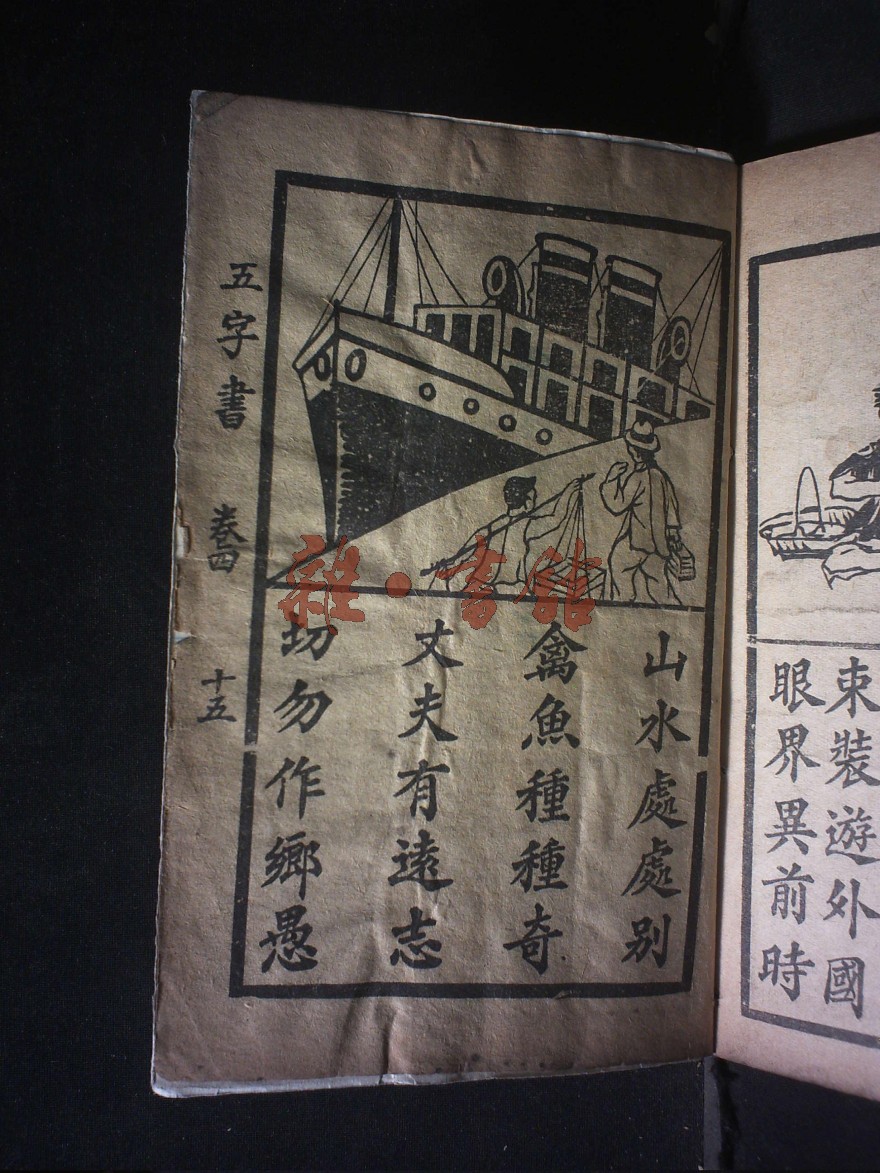 束裝遊外國
眼界異前時
山水處處別
禽魚種種奇
丈夫有遠志
切勿作鄉愚
五字書 卷四 十五
雜·書館